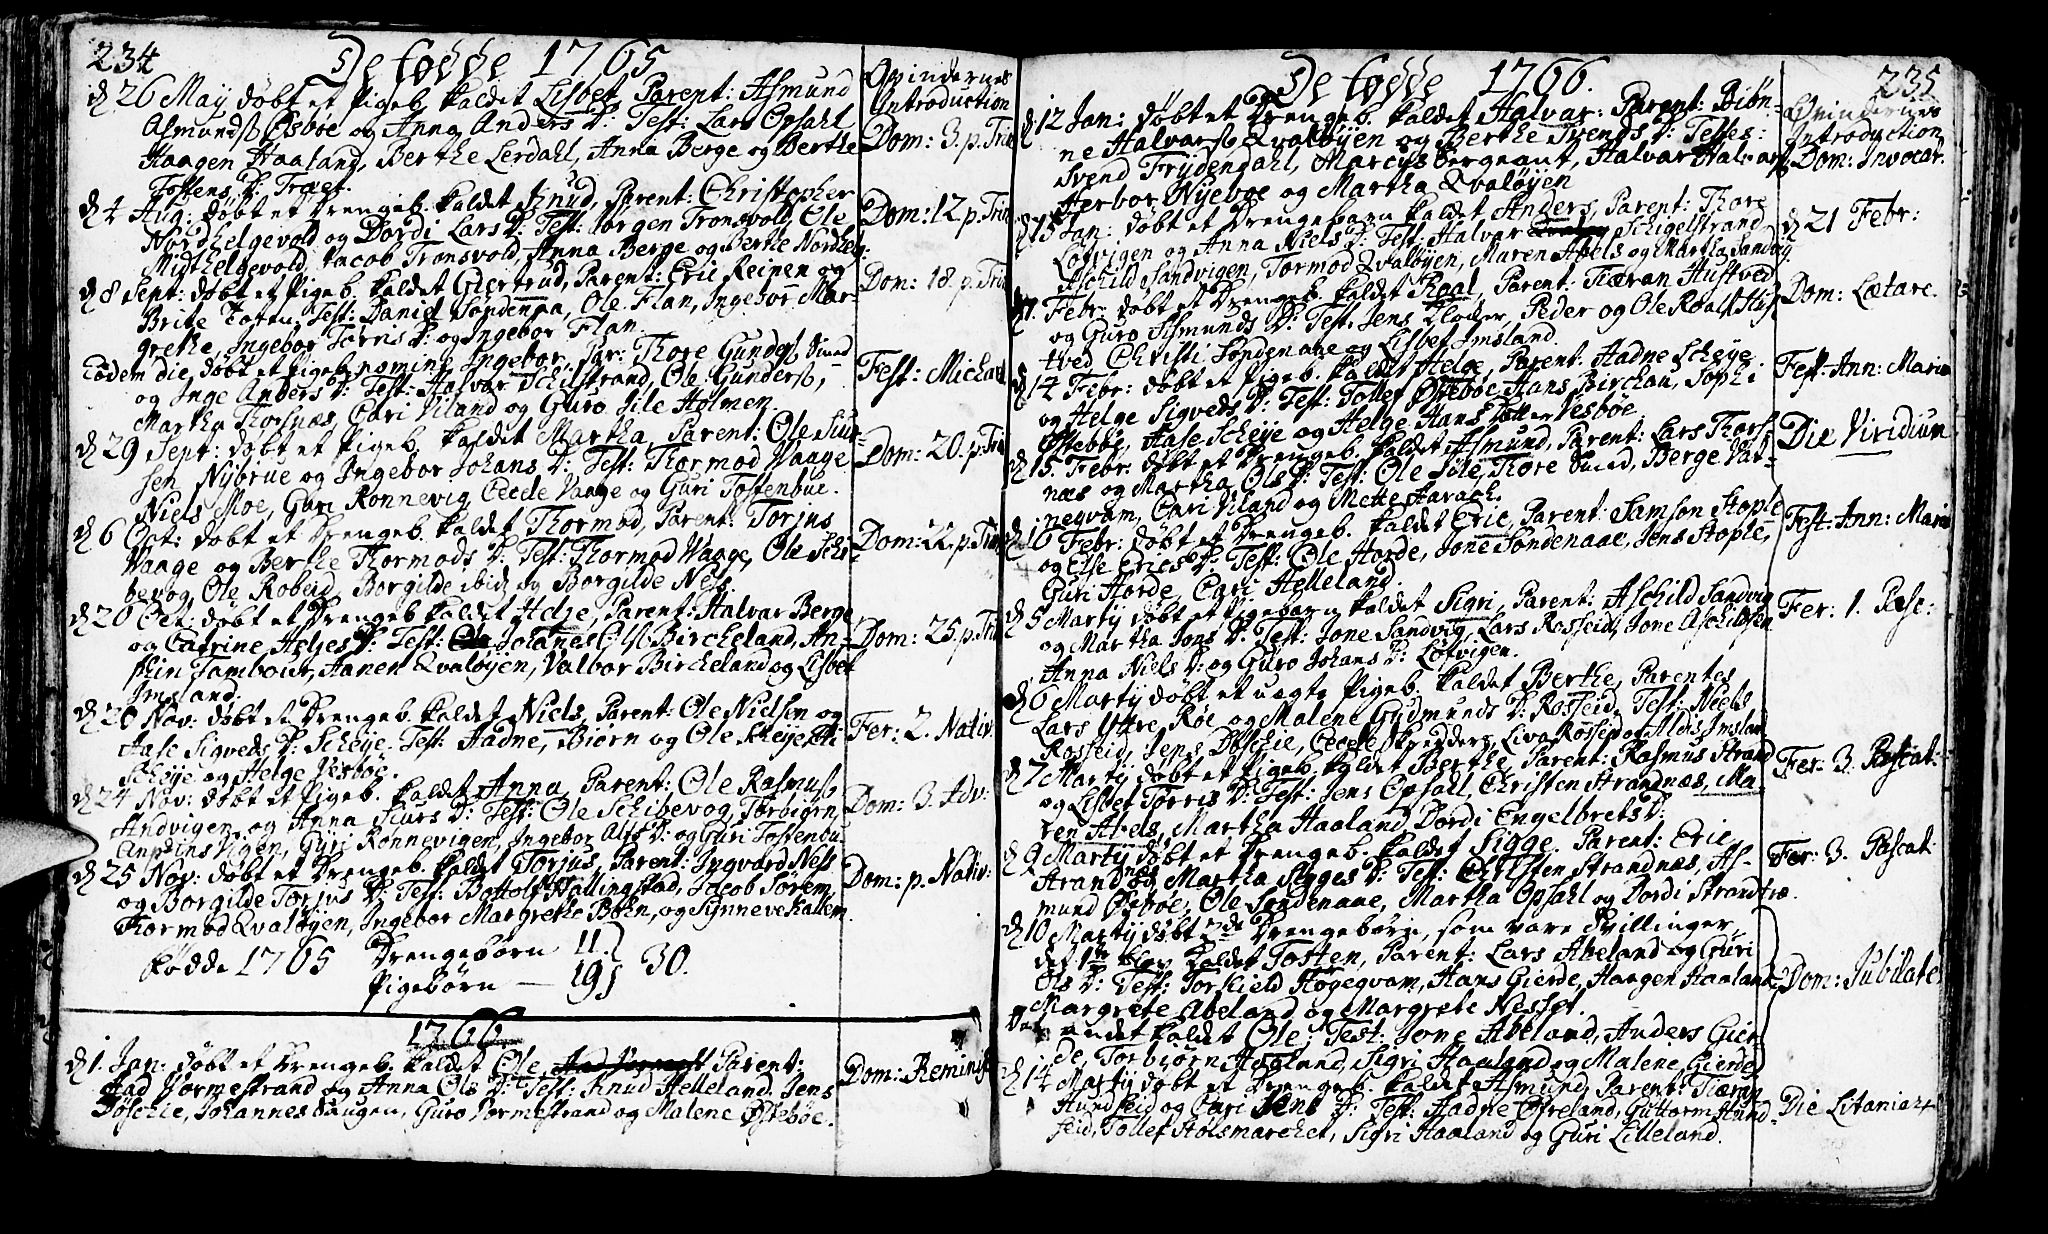 234
De fødde 1765
Qvindernes
Introduction
d 26 May døbt et Pigeb. kaldet Lisbet, Parent: Asmund
Asmunds Øsbøe og Anna Anders D: Test: Lars Opsahl
Haagen Haaland, Berthe Lerdahl, Anna Berge og Berthe
Tostens D: Træet.
Dom: 3. p. Trin
d 4 Aug: døbt et Drengeb. kaldet Knud, Parent: Christopher
Nordhelgevold og Dordi Lars D: Test: Jørgen Tronsvold, Ole
Midthelgevold, Jacob Tronsvold, Anna Berge og Berthe Nordhelg:
Dom: 12 p. Trin
d 8 Sept: døbt et Pigeb. kaldet Giertrud, Parent: Eric Reinen og
Brite Test: Daniel Søndenaa, Ole Flan, Ingebor Mar-
grethe, Ingebor Torris D: og Ingebor Flan.
Dom: 18. p. Trin
Eodem die, døbt et Pigeb. nomine Ingebor, Par: Thore Gunders Smed
og Inge Anders D: Test: Halvar Schilstrand, Ole Gunders,
Martha Thorsnæs, Cari Viland og Guro Sile Holmen.
Fest: Michael
d 29 Sept: døbt et Pigeb. kaldet Martha, Parent: Ole Siur-
sen Nybrue og Ingebor Johans D: Test: Thormod Vaage
Niels Moe, Guri Rønnevig, Cecele Vaage og Guri Tostenbue.
Dom: 20. p. Trin
d 6 Oct: døbt et Drengeb. kaldet Thormod, Parent: Torjus
Vaage og Berthe Thormods D: Test: Thormod Vaage, Ole Schi-
bevog, Ole Robeid, Borgilde ibid, og Borgilde Ness.
Dom: 22. p. Trin
d 20 Oct: døbt et Drengeb. kaldet Helje, Parent: Halvar Berge
og Catrine Heljes D: Test: Johanes Bircheland, An-
phin Tambour, Hanen Qvaløyen, Valbor Bircheland og Lisbet
Imsland.
Dom: 25. p. Trin
d 20 Nov: døbt et Drengeb. kaldet Niels, Parent: Ole Nielsen og
Aase Sigveds D: Scheye. Test: Hadne, Biørn og Ole Scheye,
Scheye og Helge Vesbøe.
Fer: 2. Nativ:
d 24 Nov: døbt et Pigeb. kaldet Anna, Parent: Ole Rasmus
Andvigen og Anna Siurs D: Test: Ole Schibevog, Torbiørn
Vigen, Gyri Rønnevigen, Ingebor Alfs D: og Guri Tostenbu
Dom: 3. Adv:
d 25 Nov: døbt et Drengeb. kaldet Torjus, Parent: Ingvard Ness
og Borgilde Torjus D: Test: Bottolf Hallingstad, Jacob Sørem,
Thormod Qvaløyen, Ingebor Margrethe Bøhn, og Synneve Kallem.
Dom: p. Nativ:
Fødde 1765 Drengebørn 11.
Pigebørn — 19 } 30.
1766
d 1. Jan: døbt et Drengeb. kaldet Ole Parent:
Aad Vormestrand og Anna Ols D: Test: Knud Helleland, Jens
Døschie, Johannes Saugen, Guro Vormestrand og Malene Østebøe.
Dom: Reminisc
235
De fødde 1766.
Qvindernes
Introduction
d 12 Jan: døbt et Drengeb. kaldet Halvar: Parent: Biøn-
ne Halvars Qvaløyen og Berthe Svends D: Testes:
Svend Frydendahl, Marcus Sergeant, Halvar Halvars
Herbor Nyeboe og Martha Qvaløyen
Dom: Invocav.
d 15 Jan: døbt et Drengebarn kaldet Anders, Parent: Thore
Lofvigen og Anna Niels D: Test: Halvar Schigelstrand
Aschild Sandvigen, Tormod Qvaløyen, Maren Abels og Martha Sandvig
d 21 Febr:
d 7. Febr: døbt et Drengeb. kaldet Roal, Parent: Tiæran Hustved
og Guro Asmunds D: Test. Jens Kloder, Peder og Ole Roals Hus-
tved, Christi Søndenaae og Lisbet Imsland.
Dom: Lætare.
d 14 Febr: døbt et Pigeb. kaldet Helge, Parent: Hadne Scheye
og Helge Sigveds D: Test: Tollef Østebøe, Hans Birchau, Sophi
Østebøe, Aase Scheye og Helge Hans Vesbøe.
Fest: Ann: Mariæ
d 15 Febr: døbt et Drengeb. kaldet Asmund, Parent: Lars Thors-
næs og Martha Ols D: Test: Ole Sile, Thore Smed, Berge Vat-
negvam, Cari Viland og Mette Aarach.
Die Viridium
d 16 Febr: døbt et Drengeb. kaldet Eric, Parent: Samson Stople
og Else Erics D: Test: Ole Horde, Jone Søndenaae, Jens Stople,
Guri Horde, Cari Helleland.
Fest: Ann: Mariæ
d 5 Martij døbt et Pigebarn kaldet Sigri, Parent: Aschild Sandvig
og Martha Jons D: Test: Jone Sandvig, Lars Rosseid, Jone Aschildsen
Anna Niels D: og Guro Johans D: Lofvigen.
Fer: 1. Pasc:
d 6 Martij døbt et uægte Pigeb. kaldet Berthe, Parentes
Lars Yttre Røe og Malene Gudmunds D: Rosseid, Test: Neels
Rosseid, Jens Døschie, Cecele Skredders, Liva Rosseid og Aldis Imsland
d 7 Martij døbt et Pigeb. kaldet Berthe, Parent: Rasmus Strand
og Lisbet Torris D: Test: Jens Opsahl, Christen Strandnæs, Ma-
ren Abels, Martha Haaland, Dordi Engelbrets D:
Fer: 3. Pascat:
d 9 Martij døbt et Drengeb. kaldet Sigge. Parent: Eric
Strandnæs og Martha Sigges D: Test: Christen Strandnæs, As-
mund Øsbøe, Ole Søndenaae, Martha Opsahl og Dordi Strandtræ.
Fer: 3. Pascat:
d 10 Martij døbt 2de Drengebørn, som vare Tvillinger,
det 1te blev kaldet Tosten, Parent: Lars Abeland og Guri
Ols D: Test: Torkield Høgegvam, Hans Gierde, Haagen Haaland
Margrete Abeland og Margrete Nesset.
Det andet kaldet Ole, Test: Jone Abeland, Anders Gier-
de, Torbiørn Haaland, Sigri Haaland og Malene Gierde
Dom: Jubilate
d 14 Martij døbt et Drengeb. kaldet Asmund, Parent: Tiæran
Hundseid og Cari Jens D: Test: Hadne Øfreland, Guttorm Hund-
seid, Tollef Holsmarchet, Sigri Haaland og Guri Lilleland.
Die Litaniar